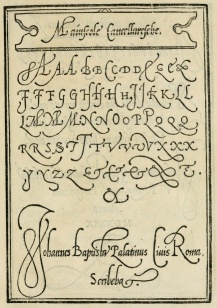 Maiuscole Cancellaresche.
A A A B B C C D D E E E E
F F F G G H H H H I I K K L L
M M M N N O O P P Q Q Q
R R S S T T V V V V X X X
Y Y Z Z
Johannes Baptista Palatinus Civis Roma.
Scribebat